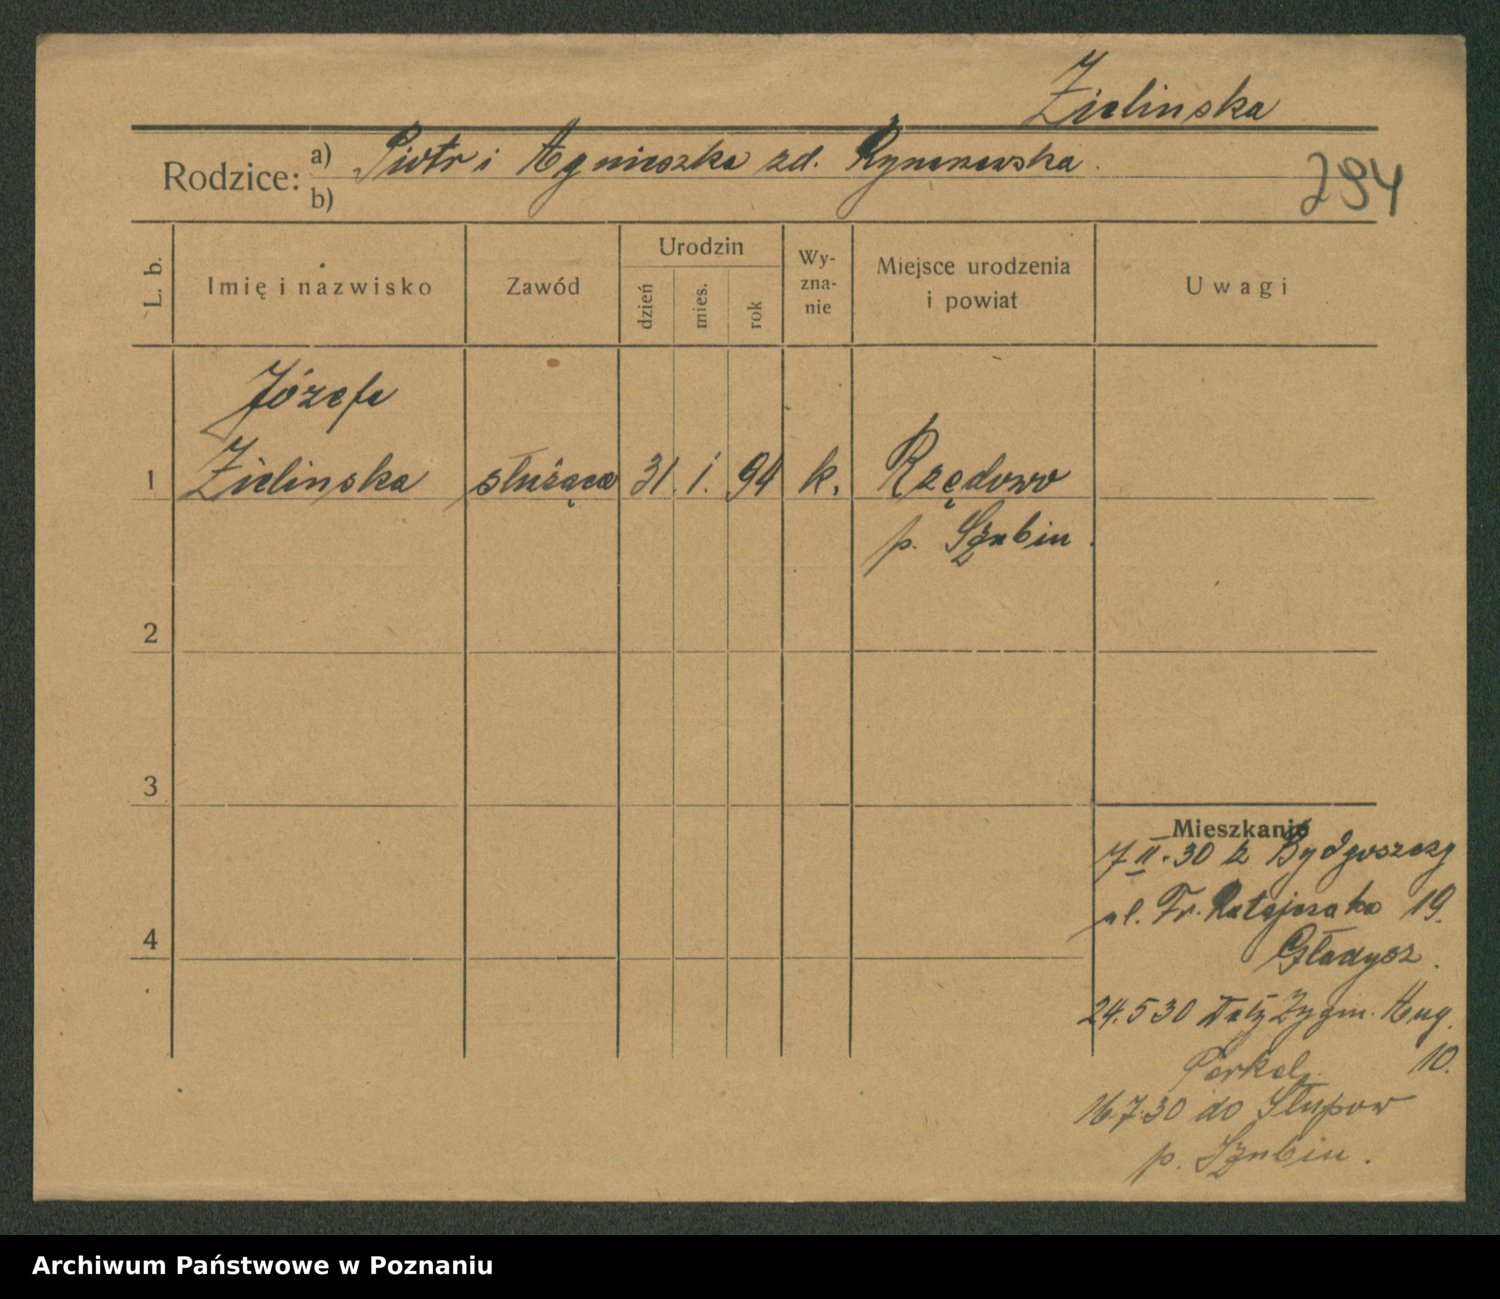 Zielinska
Rodzice: a) Piotr i Agnieszka zd. Rynarzewska.
b)
294
L. b.
Imię i nazwisko
Zawód
Urodzin
dzień
mies.
rok
Wy-
zna-
nie
Miejsce urodzenia
i powiat
Uwagi
Józefa
1 Zielinska służąca 31. i. 94 k. Rzędowo
p. Szubin.
2
3
4
Mieszkanie
7 II. 30 z Bydgoszczy
ul. Fr. Ratajczaka 19.
Gładysz.
24.5 30 Zygm. Aug.
10.
16.7.30 do Słupow
p. Szubin.
Archiwum Państwowe w Poznaniu